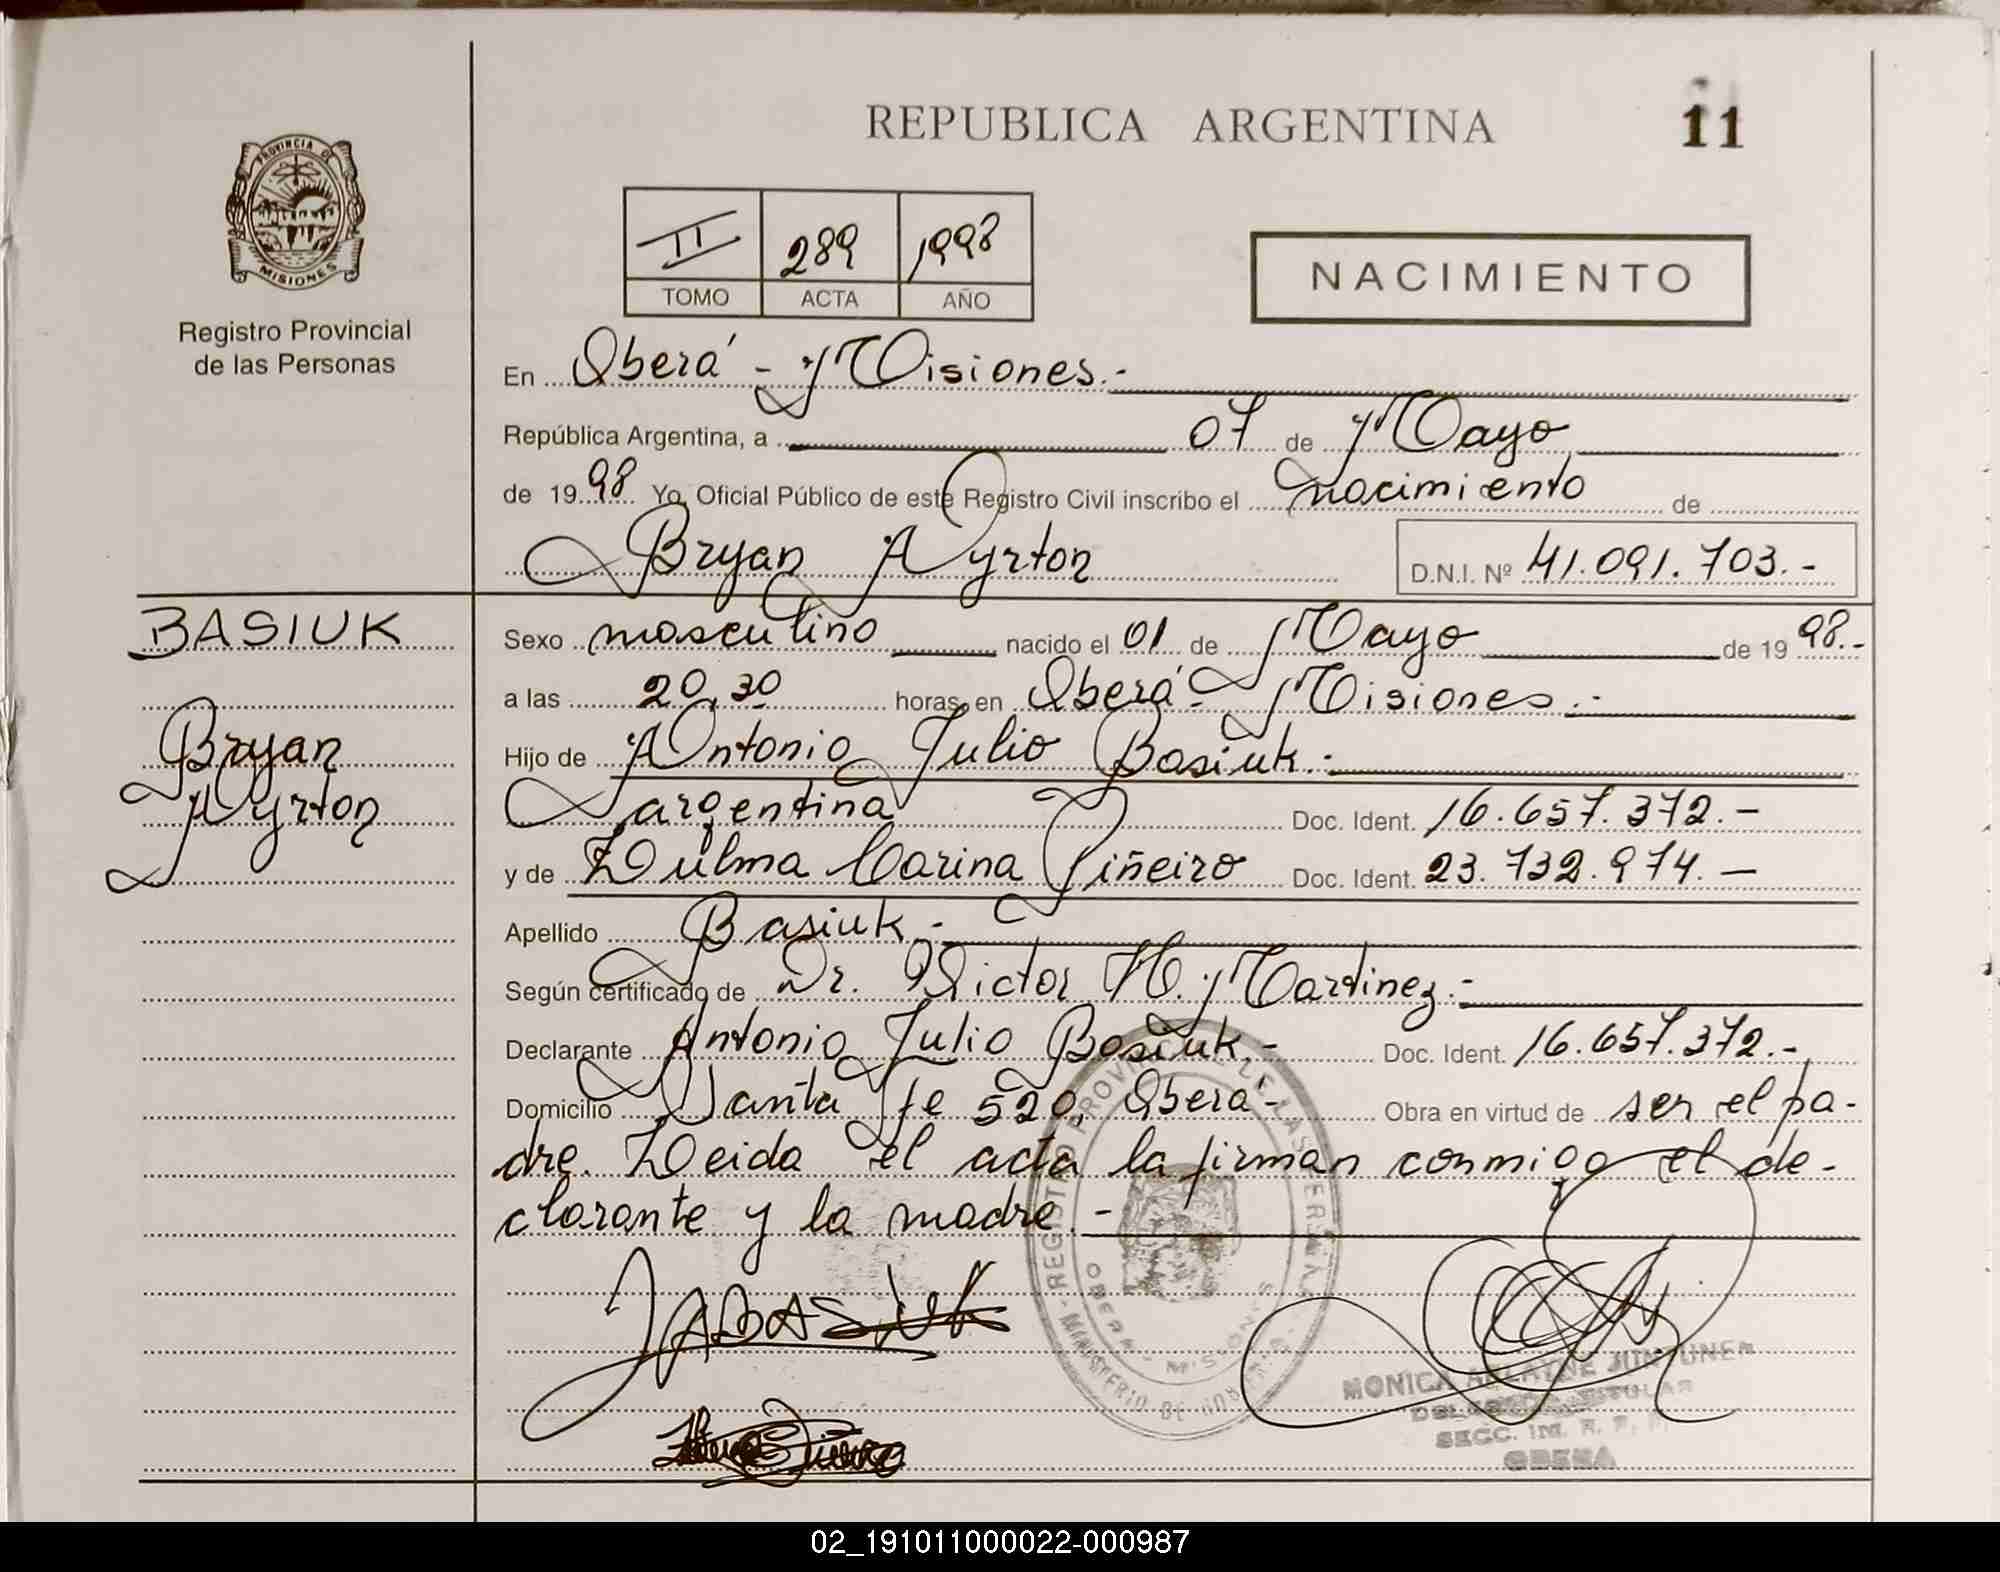 REPUBLICA ARGENTINA
11
PROVINCIA DE
MISIONES
Registro Provincial
de las Personas
II 289 1998
TOMO ACTA AÑO
NACIMIENTO
En Oberá - Misiones.-
República Argentina, a 07 de Mayo
de 1998 Yo, Oficial Público de este Registro Civil inscribo el nacimiento de
Bryan Ayrton D.N.I. Nº 41.091.703.-
BASIUK
Bryan
Ayrton
Sexo masculino nacido el 01 de Mayo de 1998.-
a las 20,30 horas, en Oberá - Misiones.-
Hijo de Antonio Julio Basiuk.-
argentina Doc. Ident. 16.657.372.-
y de Zulma Carina Piñeiro Doc. Ident. 23.732.974.-
Apellido Basiuk.-
Según certificado de Dr. Victor H. Martinez.-
Declarante Antonio Julio Basiuk.- Doc. Ident. 16.657.372.-
Domicilio Santa Fe 520, Oberá- Obra en virtud de ser el pa-
dre. Leida el acta la firman conmigo el de-
clarante y la madre.-
REGISTRO PROVINCIAL DE LAS PERSONAS
OBERA - MISIONES
MINISTERIO DE GOBIERNO
JABASIUK
MONICA
SECC. IM. R. P.
OBERA
02_191011000022-000987